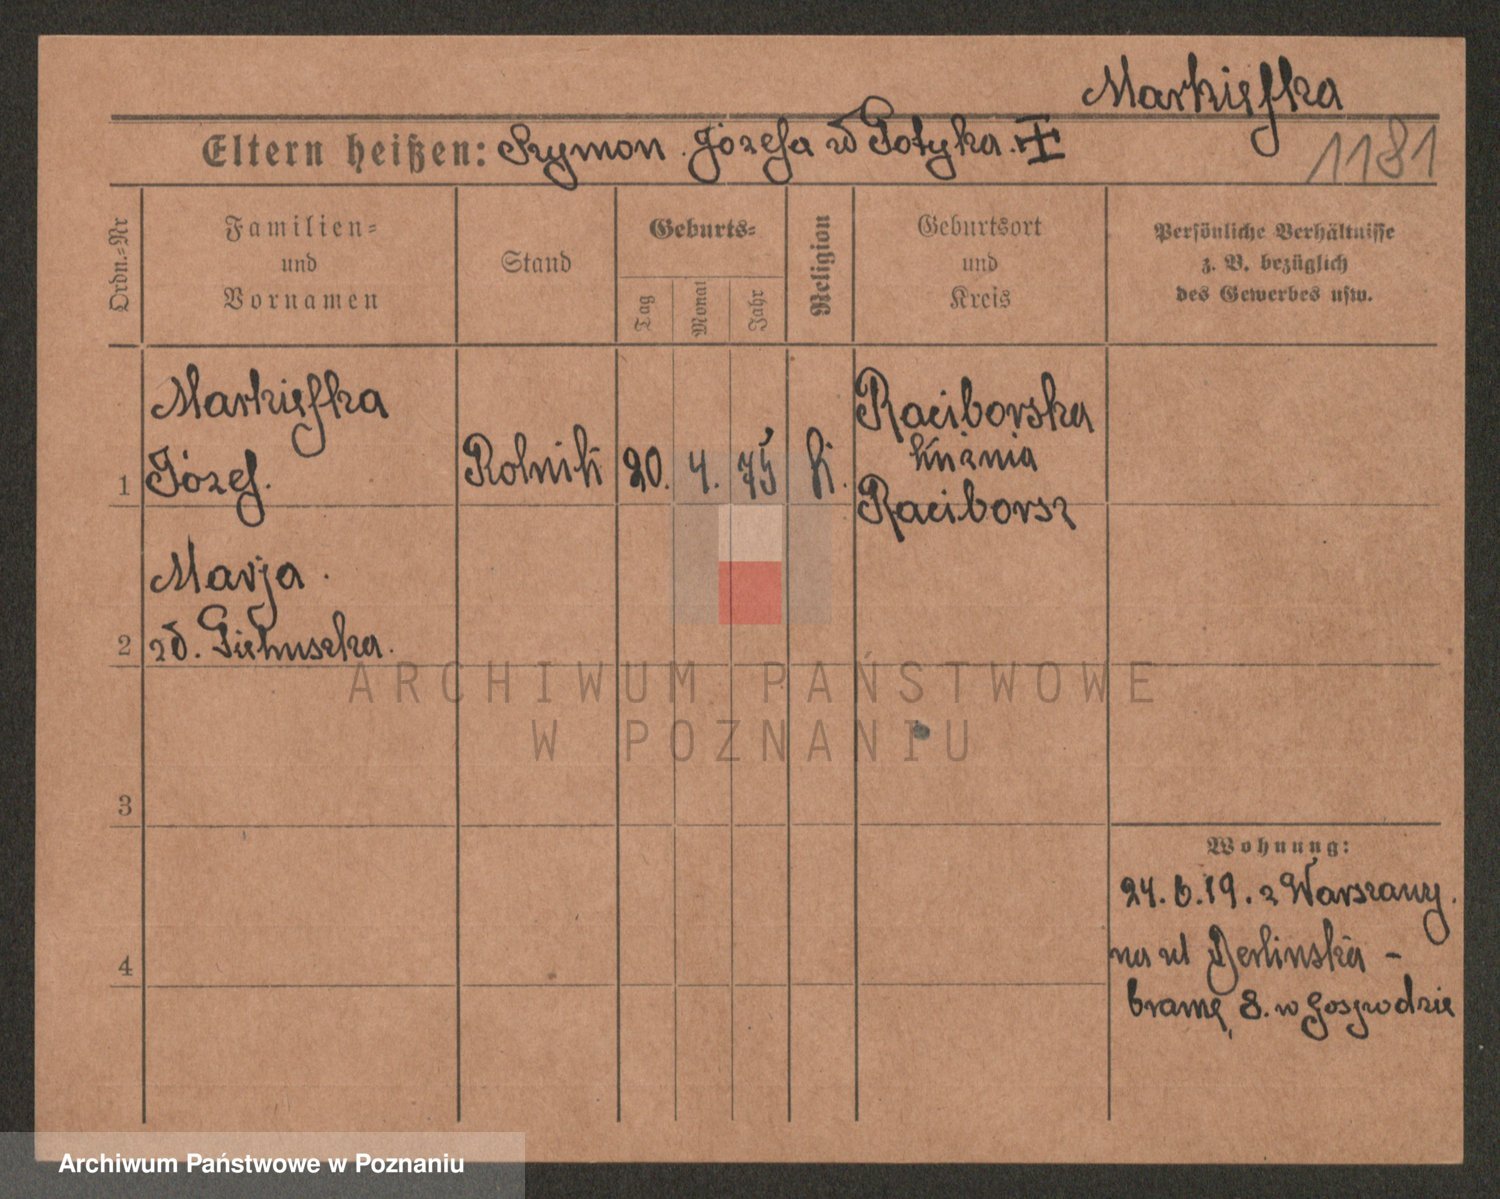 Markiefka
Eltern heißen: Szymon. Józefa zd Potyka.
1181
Ordn.-Nr
Familien-
und
Vornamen
Stand
Geburts-
Tag
Monat
Jahr
Religion
Geburtsort
und
Kreis
Persönliche Verhältnisse
z. B. bezüglich
des Gewerbes usw.
1
Markiefka
Józef.
Rolnik
20.
4.
75
k.
Raciborska
kuźnia
Raciborsz
2
Marja.
zd.
3
4
Wohnung:
24.6.19. z Warszawy.
na ul Berlinska -
bramę 8. w Gospodzie
ARCHIWUM PAŃSTWOWE
W POZNANIU
Archiwum Państwowe w Poznaniu